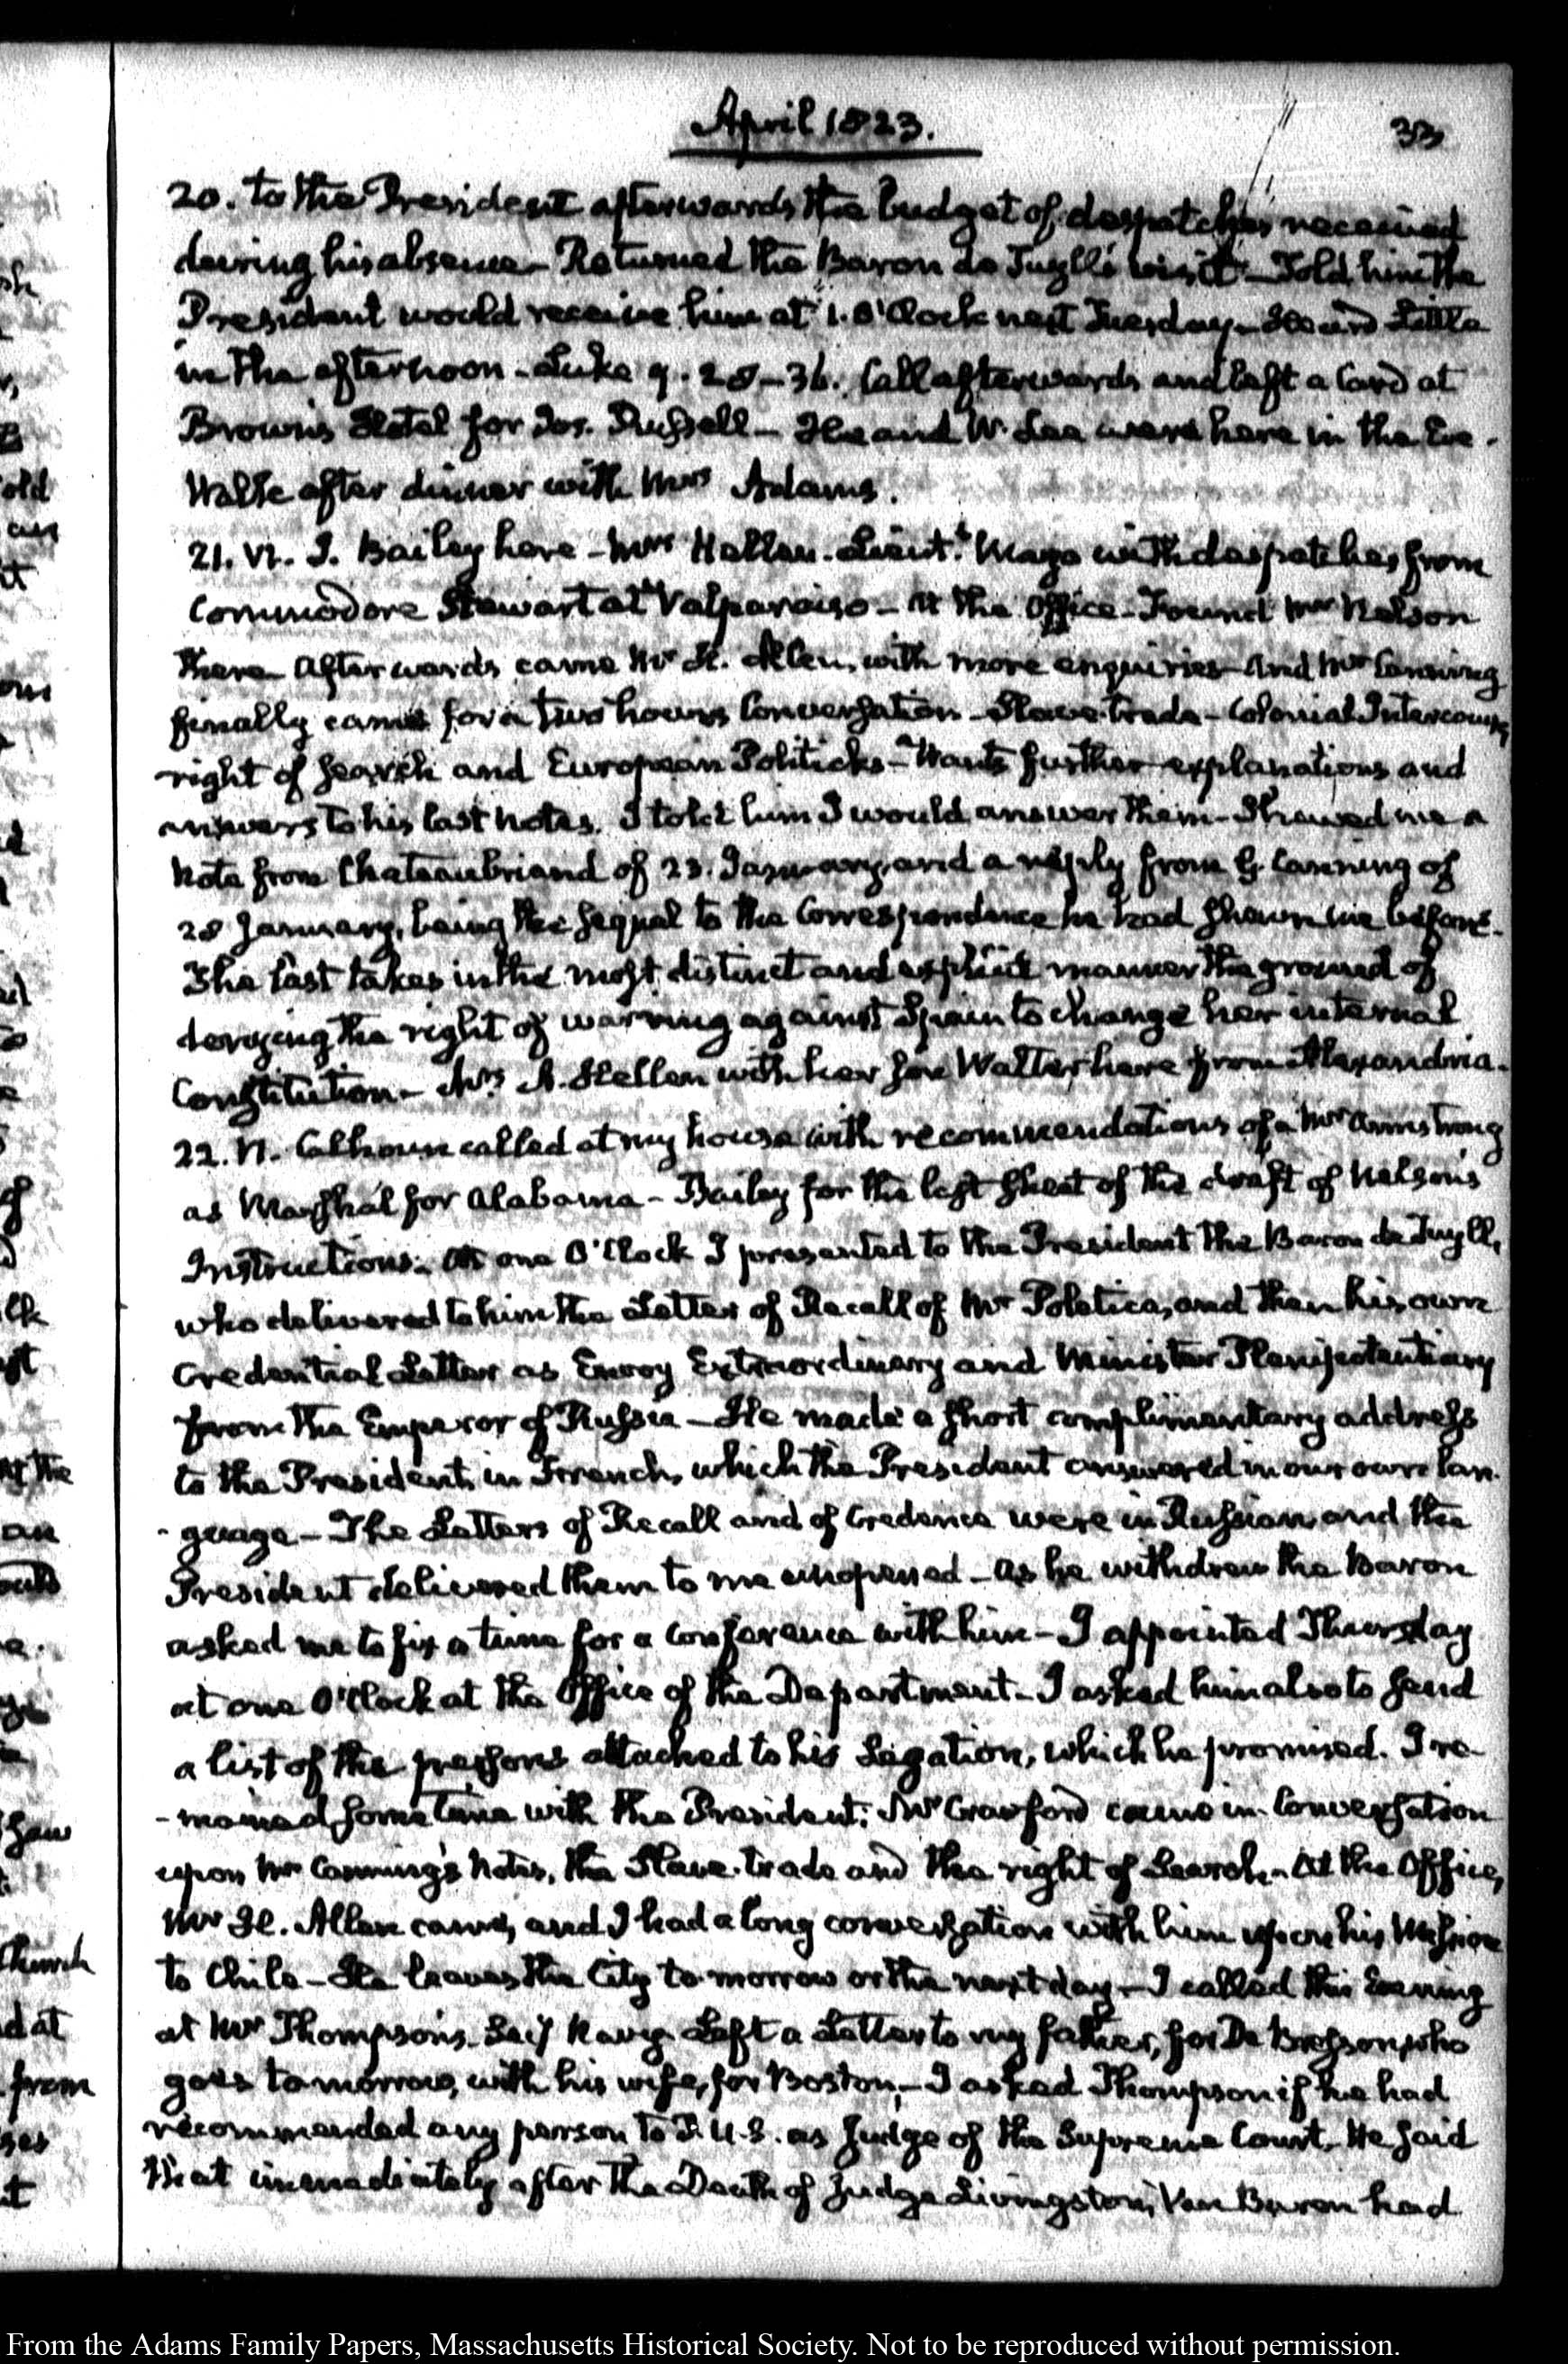 April 1823.
33
20. to the President afterwards the budget of despatches received
during his absence - Returned the Baron de Tuyll's visit - Told him the
President would receive him at 1. O'Clock next Tuesday - Heard Little
in the afternoon - Luke 9. 28-36. Call afterwards and left a Card at
Brown's Hotel for Jos. Russell - He and W. Lee were here in the Eve.
Walk after dinner with Mrs Adams.
21. VI. J. Bailey here - Mrs Hellen - Lieut. Mayo with despatches from
Commodore Stewart at Valparaiso - At the Office - Found Mr Nelson
there - Afterwards came Mr H. Allen, with more enquiries - And Mr Canning
finally came for a two hours Conversation - Slave trade - Colonial Intercourse,
right of search and European Politicks - Wants further explanations and
answers to his last notes. I told him I would answer them - Shewed me a
Note from Chateaubriand of 23. January, and a reply from G. Canning of
28 January, being the sequel to the Correspondence he had shewn me before.
The last takes in the most distinct and explicit manner the ground of
denying the right of warring against Spain to change her internal
Constitution - Mrs A. Hellen with her son Walter here from Alexandria.
22. VI. Calhoun called at my house with recommendations of a Mr Armstrong
as Marshal for Alabama - Bailey for the last sheet of the draft of Nelson's
Instructions. At one O'Clock I presented to the President the Baron de Tuyll,
who delivered to him the Letter of Recall of Mr Poletica, and then his own
Credential Letter as Envoy Extraordinary and Minister Plenipotentiary
from the Emperor of Russia - He made a short complimentary address
to the President, in French, which the President answered in our own lan-
-guage - The Letters of Recall and of Credence were in Russian, and the
President delivered them to me unopened - As he withdrew the Baron
asked me to fix a time for a Conference with him - I appointed Thursday
at one O'Clock at the Office of the Department - I asked him also to send
a list of the persons attached to his Legation, which he promised. I re-
-mained some time with the President; Mr Crawford came in. Conversation
upon Mr Canning's Notes, the Slave-trade and the right of Search - At the Office,
Mr H. Allen came, and I had a long conversation with him upon his Mission
to Chile - He leaves the City to-morrow or the next day - I called this Evening
at Mr Thompson's. Secy Navy. Left a Letter to my father, for De Bresson, who
goes tomorrow, with his wife, for Boston - I asked Thompson if he had
recommended any person to P. U.S. as Judge of the Supreme Court. He said
that immediately after the Death of Judge Livingston, Van Buren had
From the Adams Family Papers, Massachusetts Historical Society. Not to be reproduced without permission.